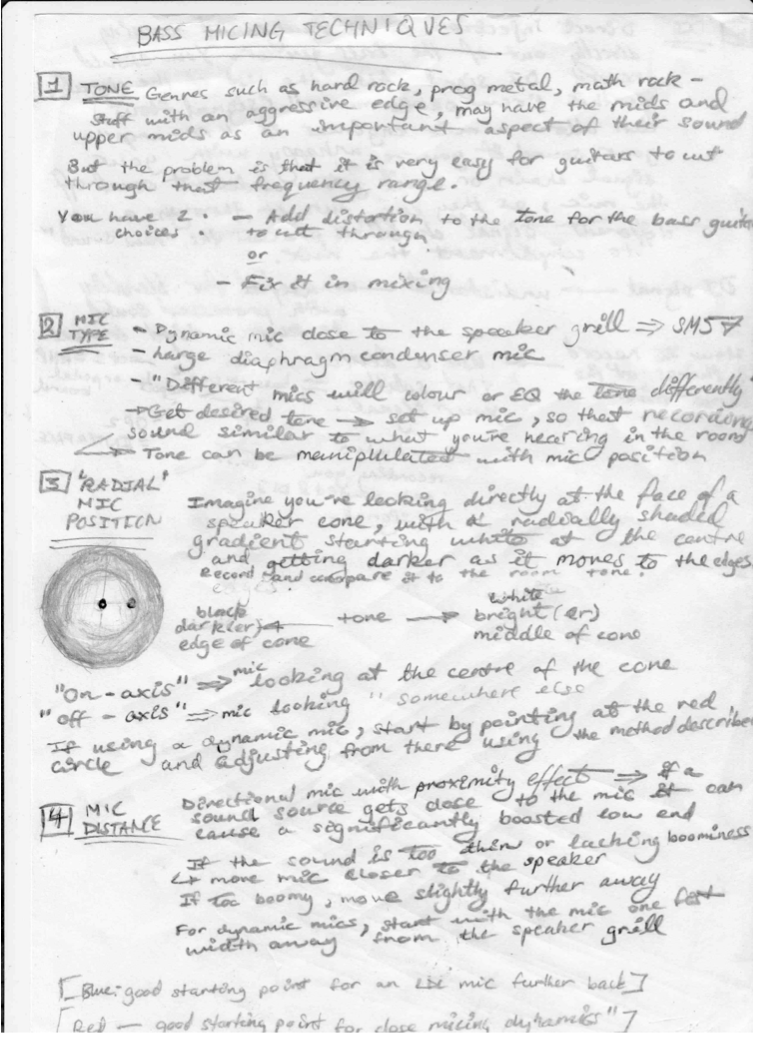 BASS MICING TECHNIQUES
1 TONE Genres such as hard rock, prog metal, math rock -
stuff with an aggressive edge, may have the mids and
upper mids as an important aspect of their sound
But the problem is that it is very easy for guitars to cut
through that frequency range.
You have 2 - Add distortion to the tone for the bass guitar
choices. to cut through
or
- Fix it in mixing
2 MIC TYPE - Dynamic mic close to the speaker grill ⇒ SM57
- Large diaphragm condenser mic
- "Different mics will colour or EQ the tone differently"
→ Get desired tone → set up mic, so that recording
sound similar to what you're hearing in the room
→ Tone can be maniplulated with mic position
3 "RADIAL" MIC POSITION
Imagine you're looking directly at the face of a
speaker cone, with a radially shaded
gradient starting white at the centre
and getting darker as it moves to the edges
Record and compare it to the room tone.
black white
dark(er) ← tone → bright(er)
edge of cone middle of cone
"On-axis" ⇒ mic looking at the centre of the cone
"off-axis" ⇒ mic looking " somewhere else
If using a dynamic mic, start by pointing at the red
circle and adjusting from there using the method describe
4 MIC DISTANCE
Directional mic with proximity effect ⇒ if a
sound source gets close to the mic it can
cause a significantly boosted low end
If the sound is too thin or lacking boominess
↳ move mic closer to the speaker
If too boomy, move slightly further away
For dynamic mics, start with the mic one fist
width away from the speaker grill
[Blue: good starting point for an LDC mic further back]
[Red — good starting point for close micing dynamics"]